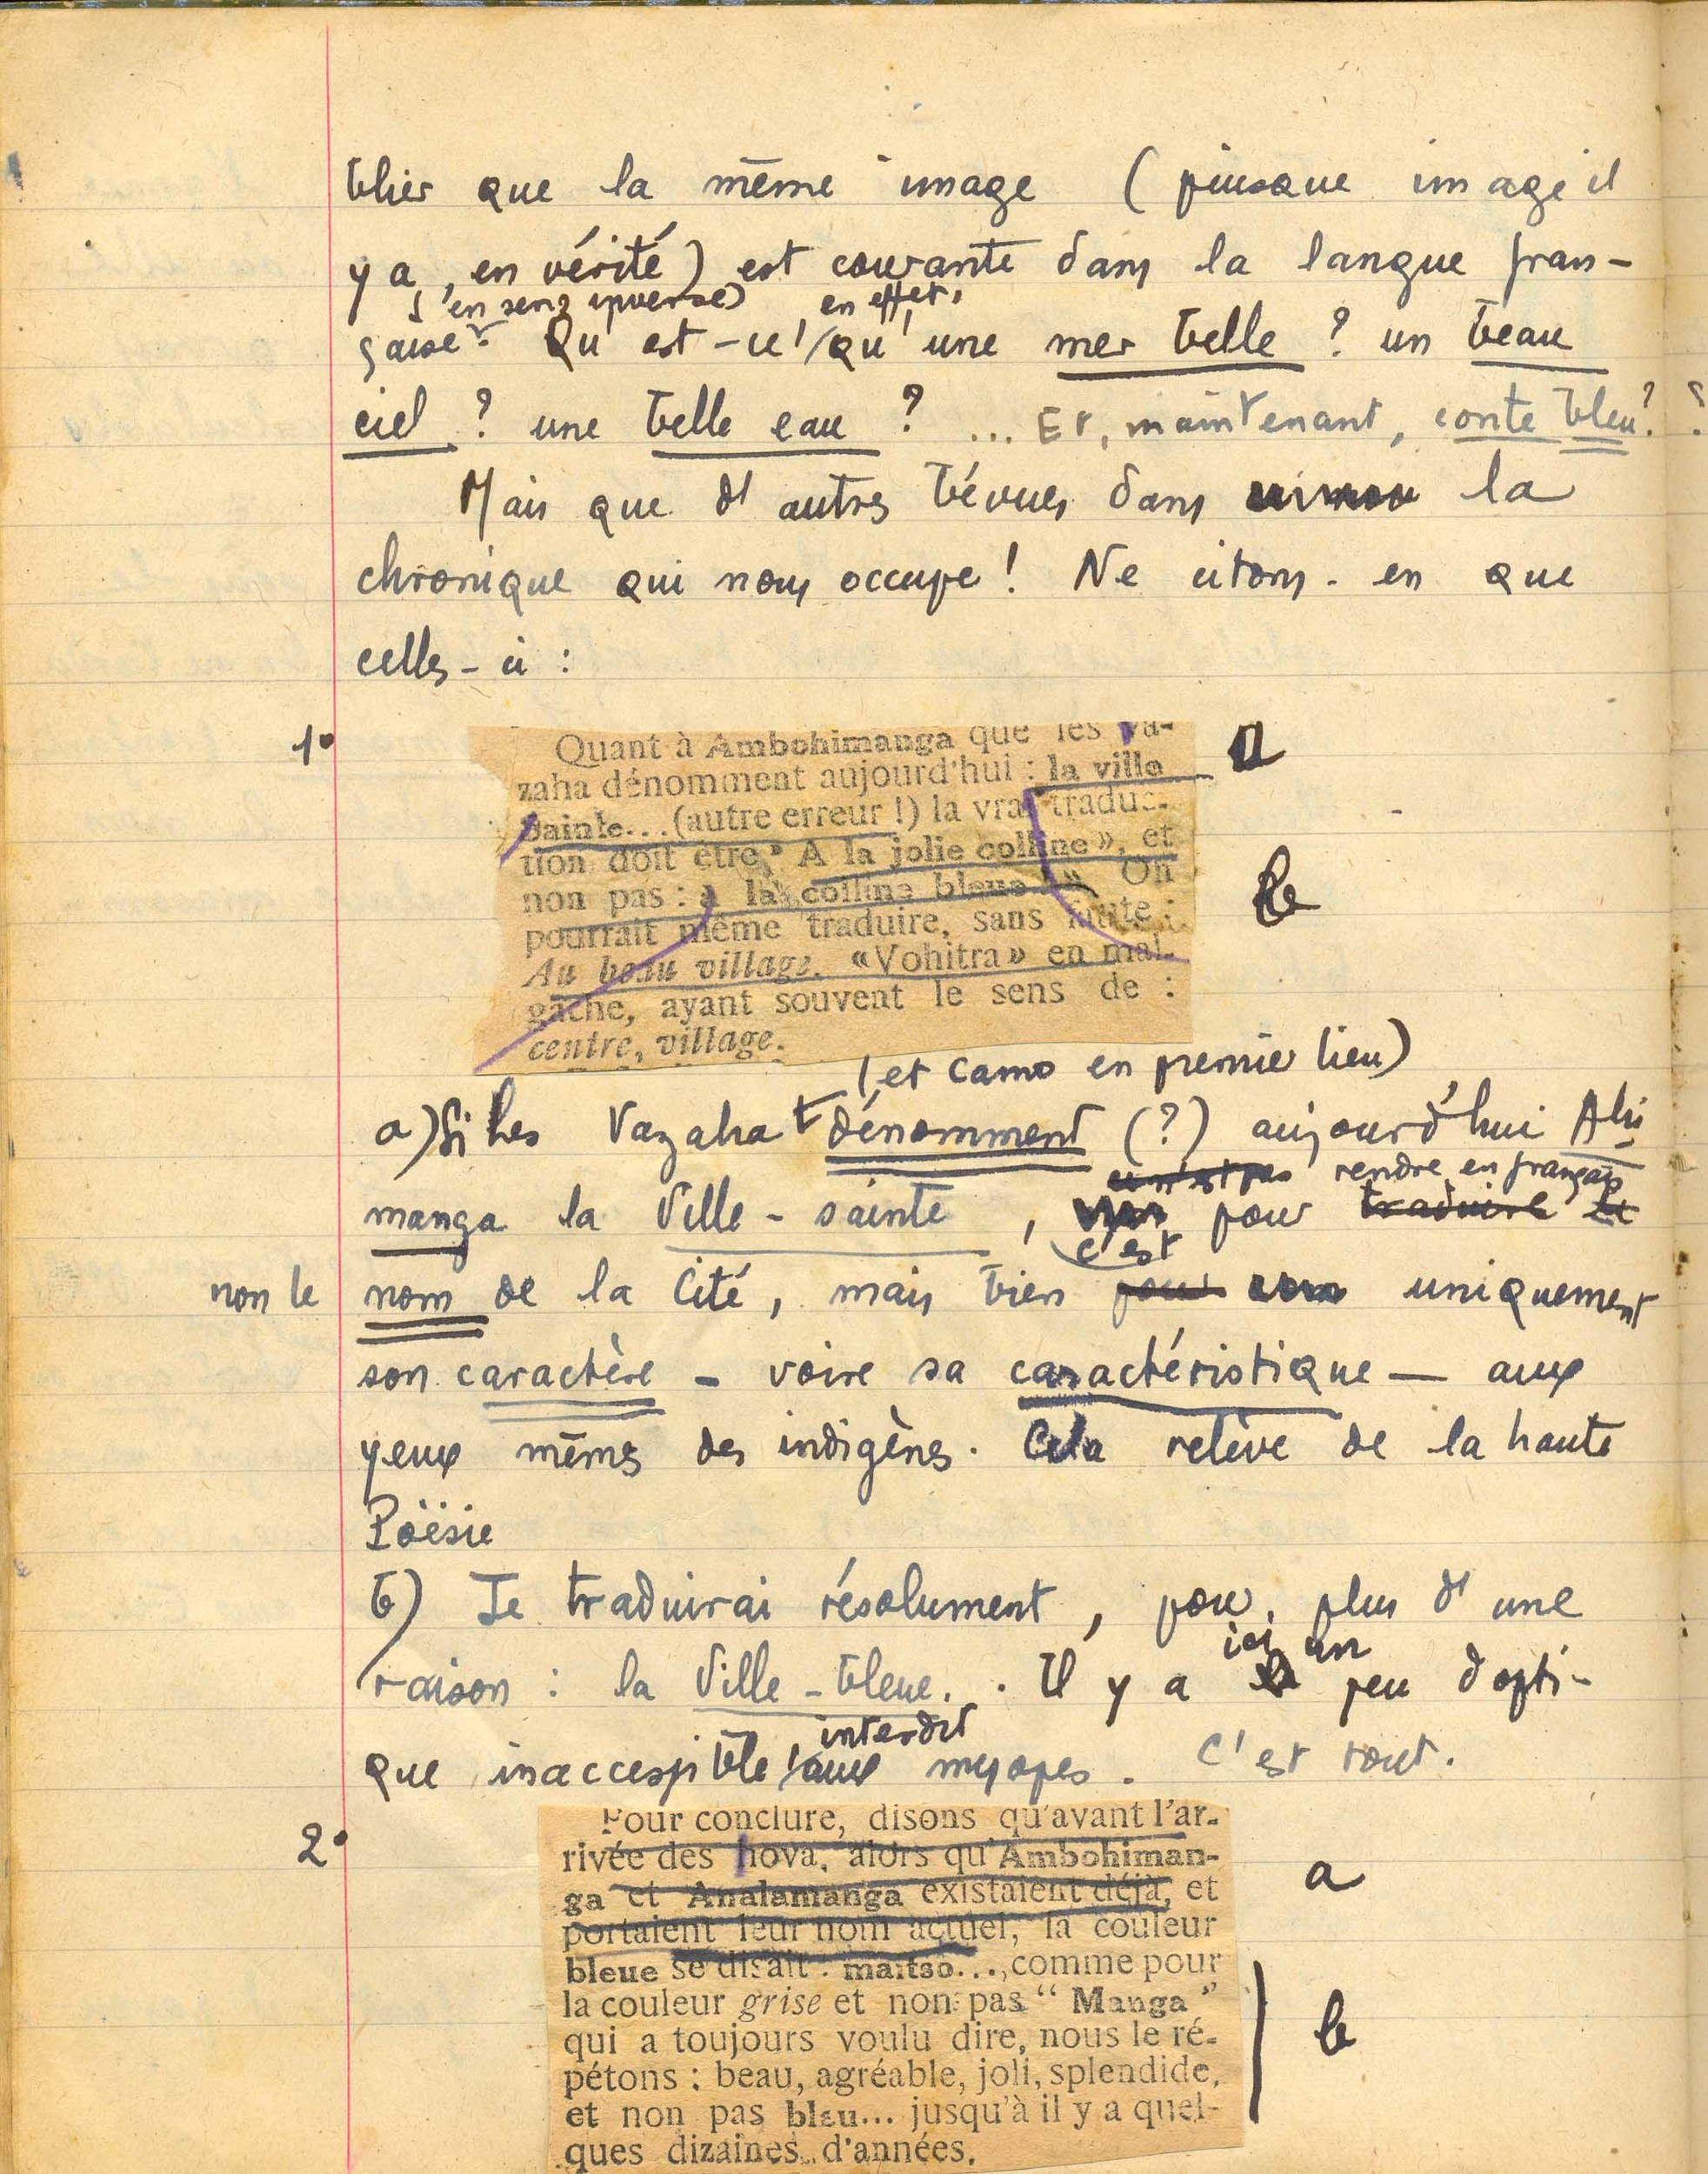 blier que la même image (puisque image il
y a, en vérité) est courante dans la langue fran-
(en sens inverse) en effet,
çaise. Qu'est-ce qu'une mer belle ? un beau
ciel ? une belle eau ? ... Et, maintenant, conte bleu ? ?
Mais que d'autres bévues dans la
chronique qui nous occupe ! Ne citons-en que
celles-ci :
1° Quant à Ambohimanga que les va- a
zaha dénomment aujourd'hui : la ville
sainte... (autre erreur !) la vrai traduc-
tion doit être " A la jolie colline », et
non pas : à la colline bleue ! » On b
pourrait même traduire, sans faute :
Au beau village. «Vohitra» en mal-
gache, ayant souvent le sens de :
centre, village.
(et Camo en premier lieu)
a) Si les Vazaha dénomment (?) aujourd'hui Ahi
rendre en français
manga la Ville-sainte, pour traduire le
c'est
non le nom de la Cité, mais bien pour uniquement
son caractère – voire sa caractéristique — aux
yeux mêmes des indigènes. Cela relève de la haute
Poësie
b) Je traduirai résolument, pour plus d'une
ici un
raison : la Ville-bleue. . Il y a peu d'opti-
interdit
que inaccessible aux myopes. C'est tout.
2° Pour conclure, disons qu'avant l'ar-
rivée des hova, alors qu'Ambohiman- a
ga et Analamanga existaient déjà, et
portaient leur nom actuel, la couleur
bleue se disait : maitso..., comme pour
la couleur grise et non pas " Manga "
qui a toujours voulu dire, nous le ré- b
pétons : beau, agréable, joli, splendide,
et non pas bleu... jusqu'à il y a quel-
ques dizaines d'années.